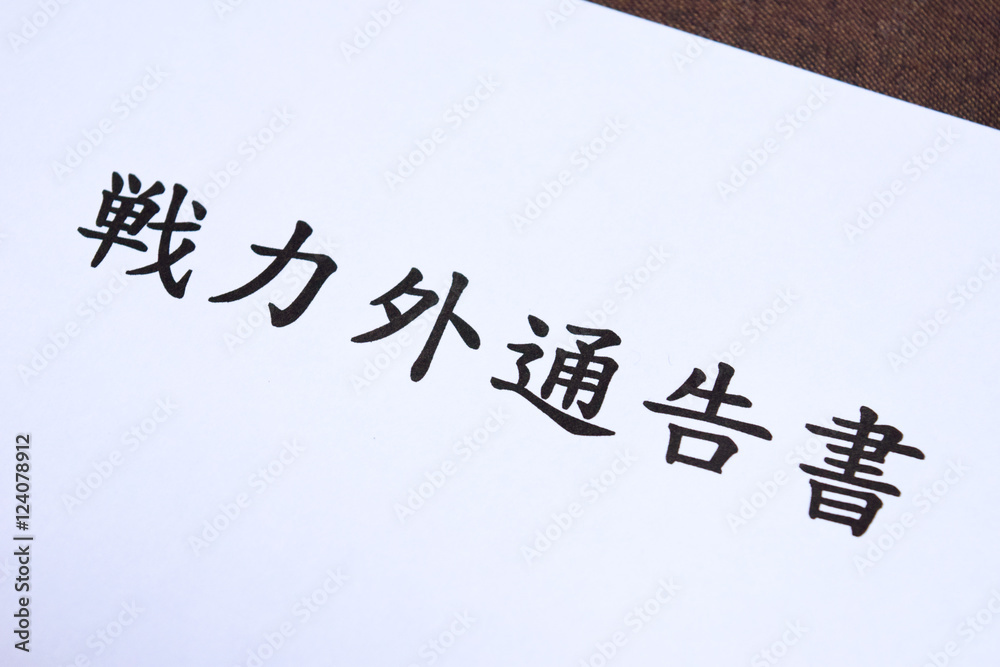 戦力外通告書
Adobe Stock | #124078912